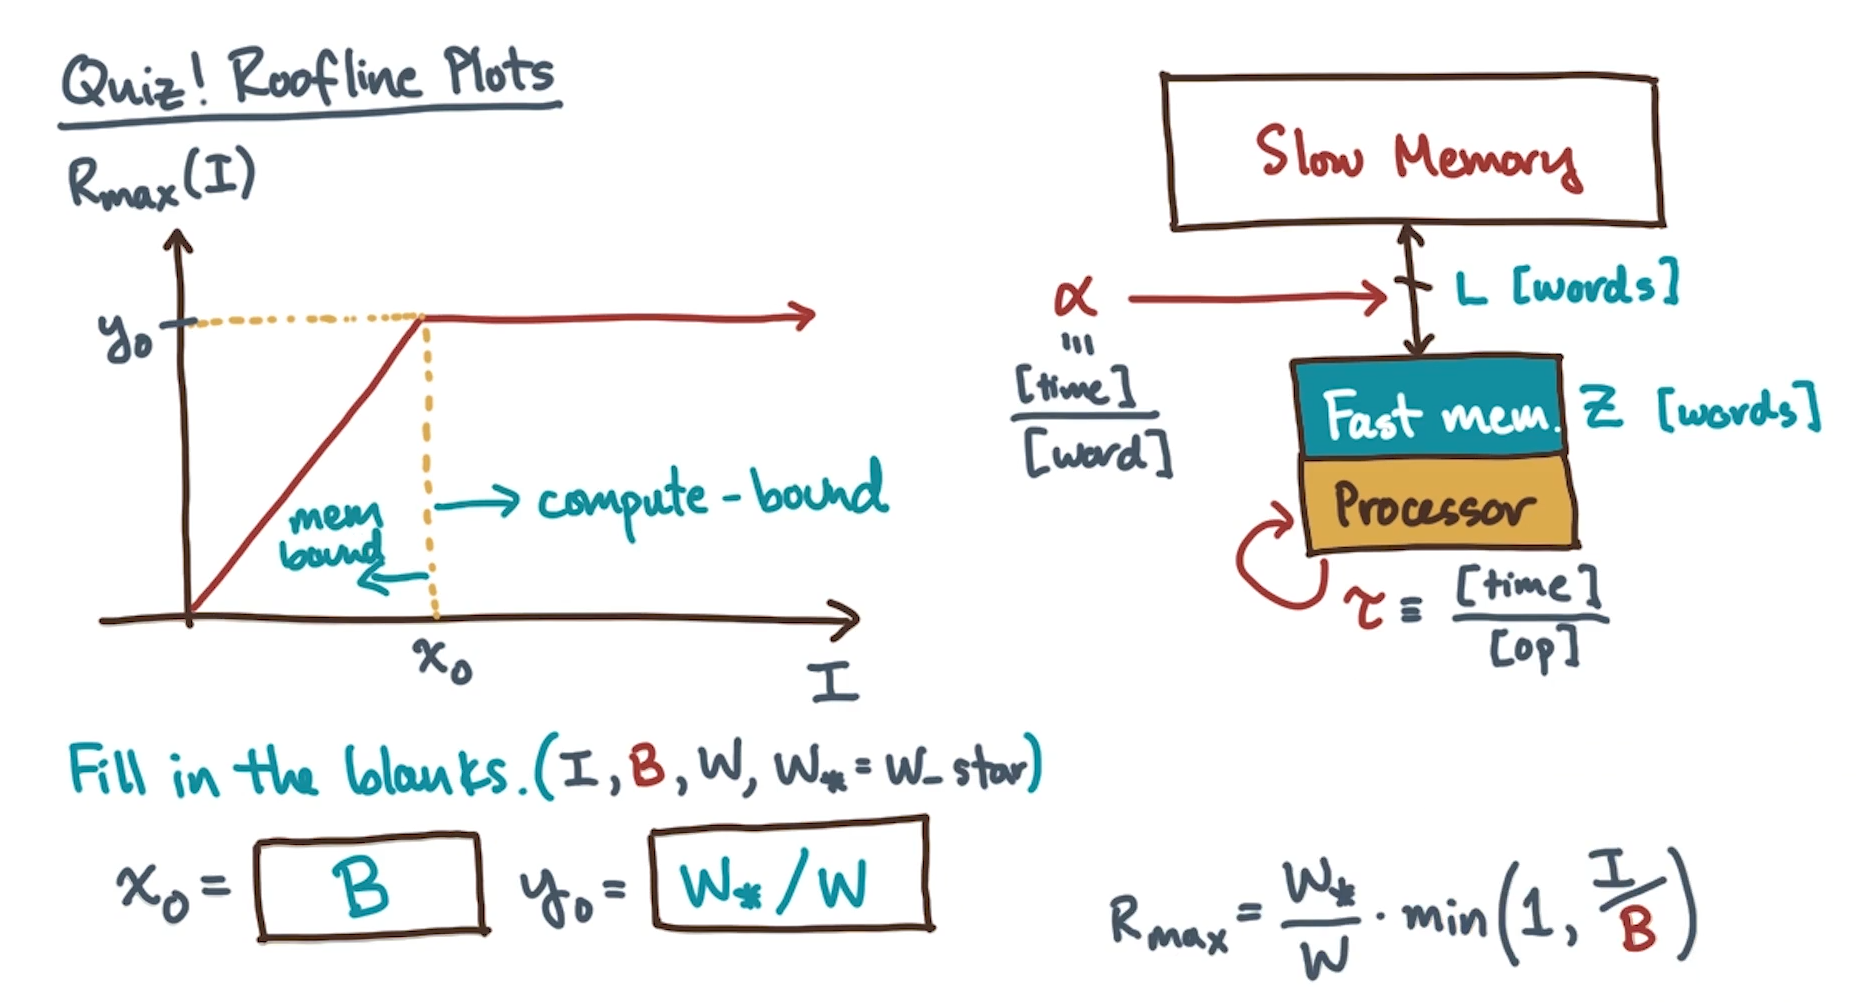 Quiz! Roofline Plots
R_max(I)
y₀
mem
bound
→ compute-bound
x₀
I
Slow Memory
α
≡
[time]
[word]
L [words]
Fast mem.
Z [words]
Processor
τ ≡ [time]
[op]
Fill in the blanks. (I, B, W, W_* = W_star)
x₀ = B y₀ = W_*/W
R_max = W_*/W · min(1, I/B)